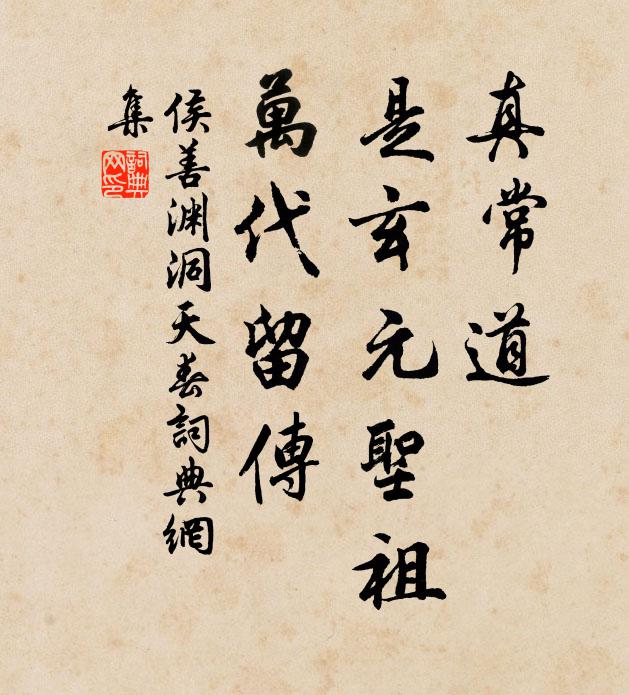 真常道
是玄元聖祖
萬代留傳
侯善渊洞天春詞典網
集
詞典
网印